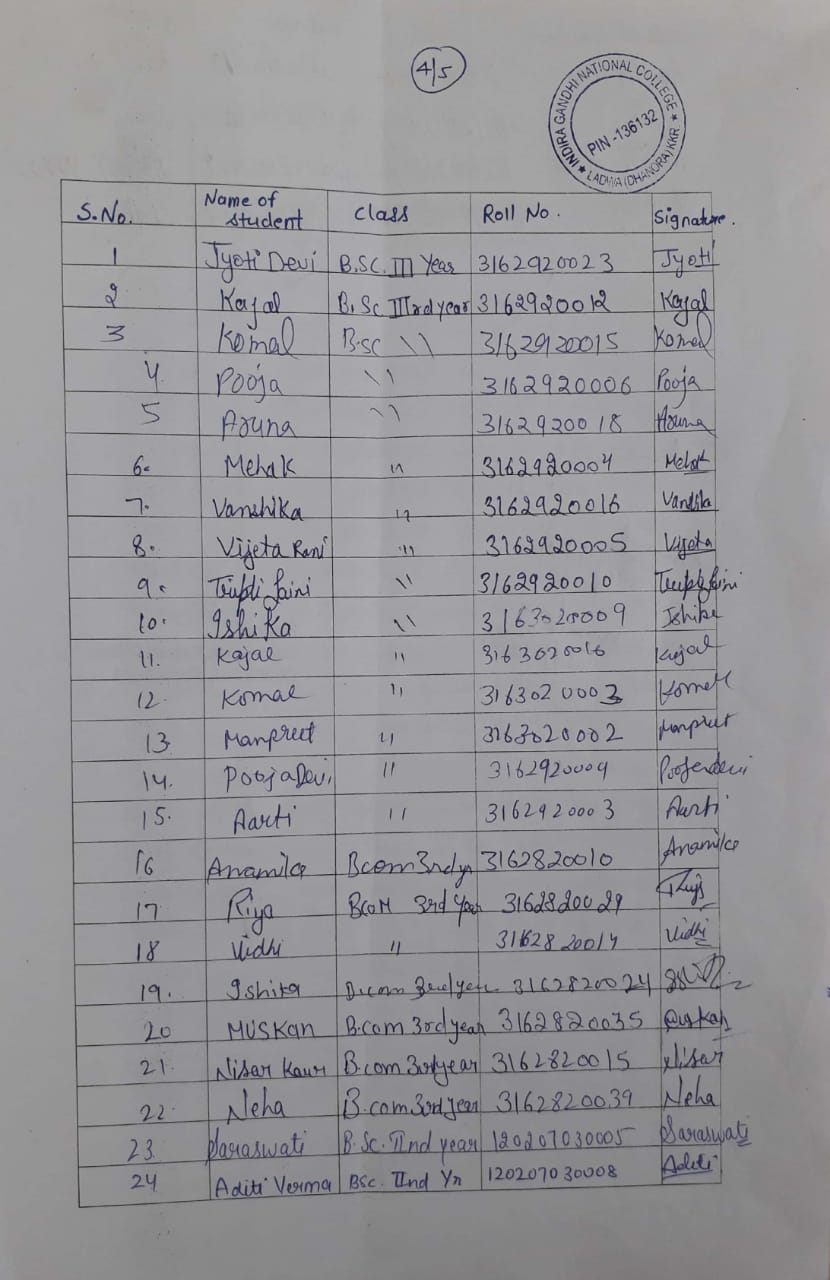 4/5
INDIRA GANDHI NATIONAL COLLEGE
PIN-136132
LADWA (DHANORA) KKR.
S.No. Name of student Class Roll No. Signature.
1 Jyoti Devi B.SC. III Year 3162920023 Jyoti
2 Kajal B.Sc IIIrd year 3162920012 Kajal
3 Komal B.sc \\ 3162920015 Komal
4 Pooja \\ 3162920006 Pooja
5 Aruna \\ 3162920018 Aruna
6. Mehak " 3162920004 Mehak
7. Vanshika " 3162920016 Vanshika
8. Vijeta Rani " 3162920005 Vijeta
9. Tripti Saini \\ 3162920010 Tripti Saini
10. Ishika \\ 3163020009 Ishika
11. Kajal " 3163020016 Kajal
12. Komal " 3163020003 Komal
13 Manpreet " 3163020002 Manpreet
14. Pooja Devi " 3162920009 Pooja devi
15. Aarti " 3162920003 Aarti
16 Anamika Bcom 3rd yr 3162820010 Anamika
17 Riya BCoM 3rd Year 3162820029
18 Vidhi " 3162820014 Vidhi
19. Ishika B.com 3rd year 3162820024
20 MUSKAN B.com 3rd year 3162820035 Muskan
21. Nisar Kaur B.com 3rd year 3162820015 Nisar
22. Neha B.com 3rd year 3162820039 Neha
23 Saraswati B.Sc. IInd year 120207030005 Saraswati
24 Aditi Verma BSC. IInd Yr 120207030008 Aditi